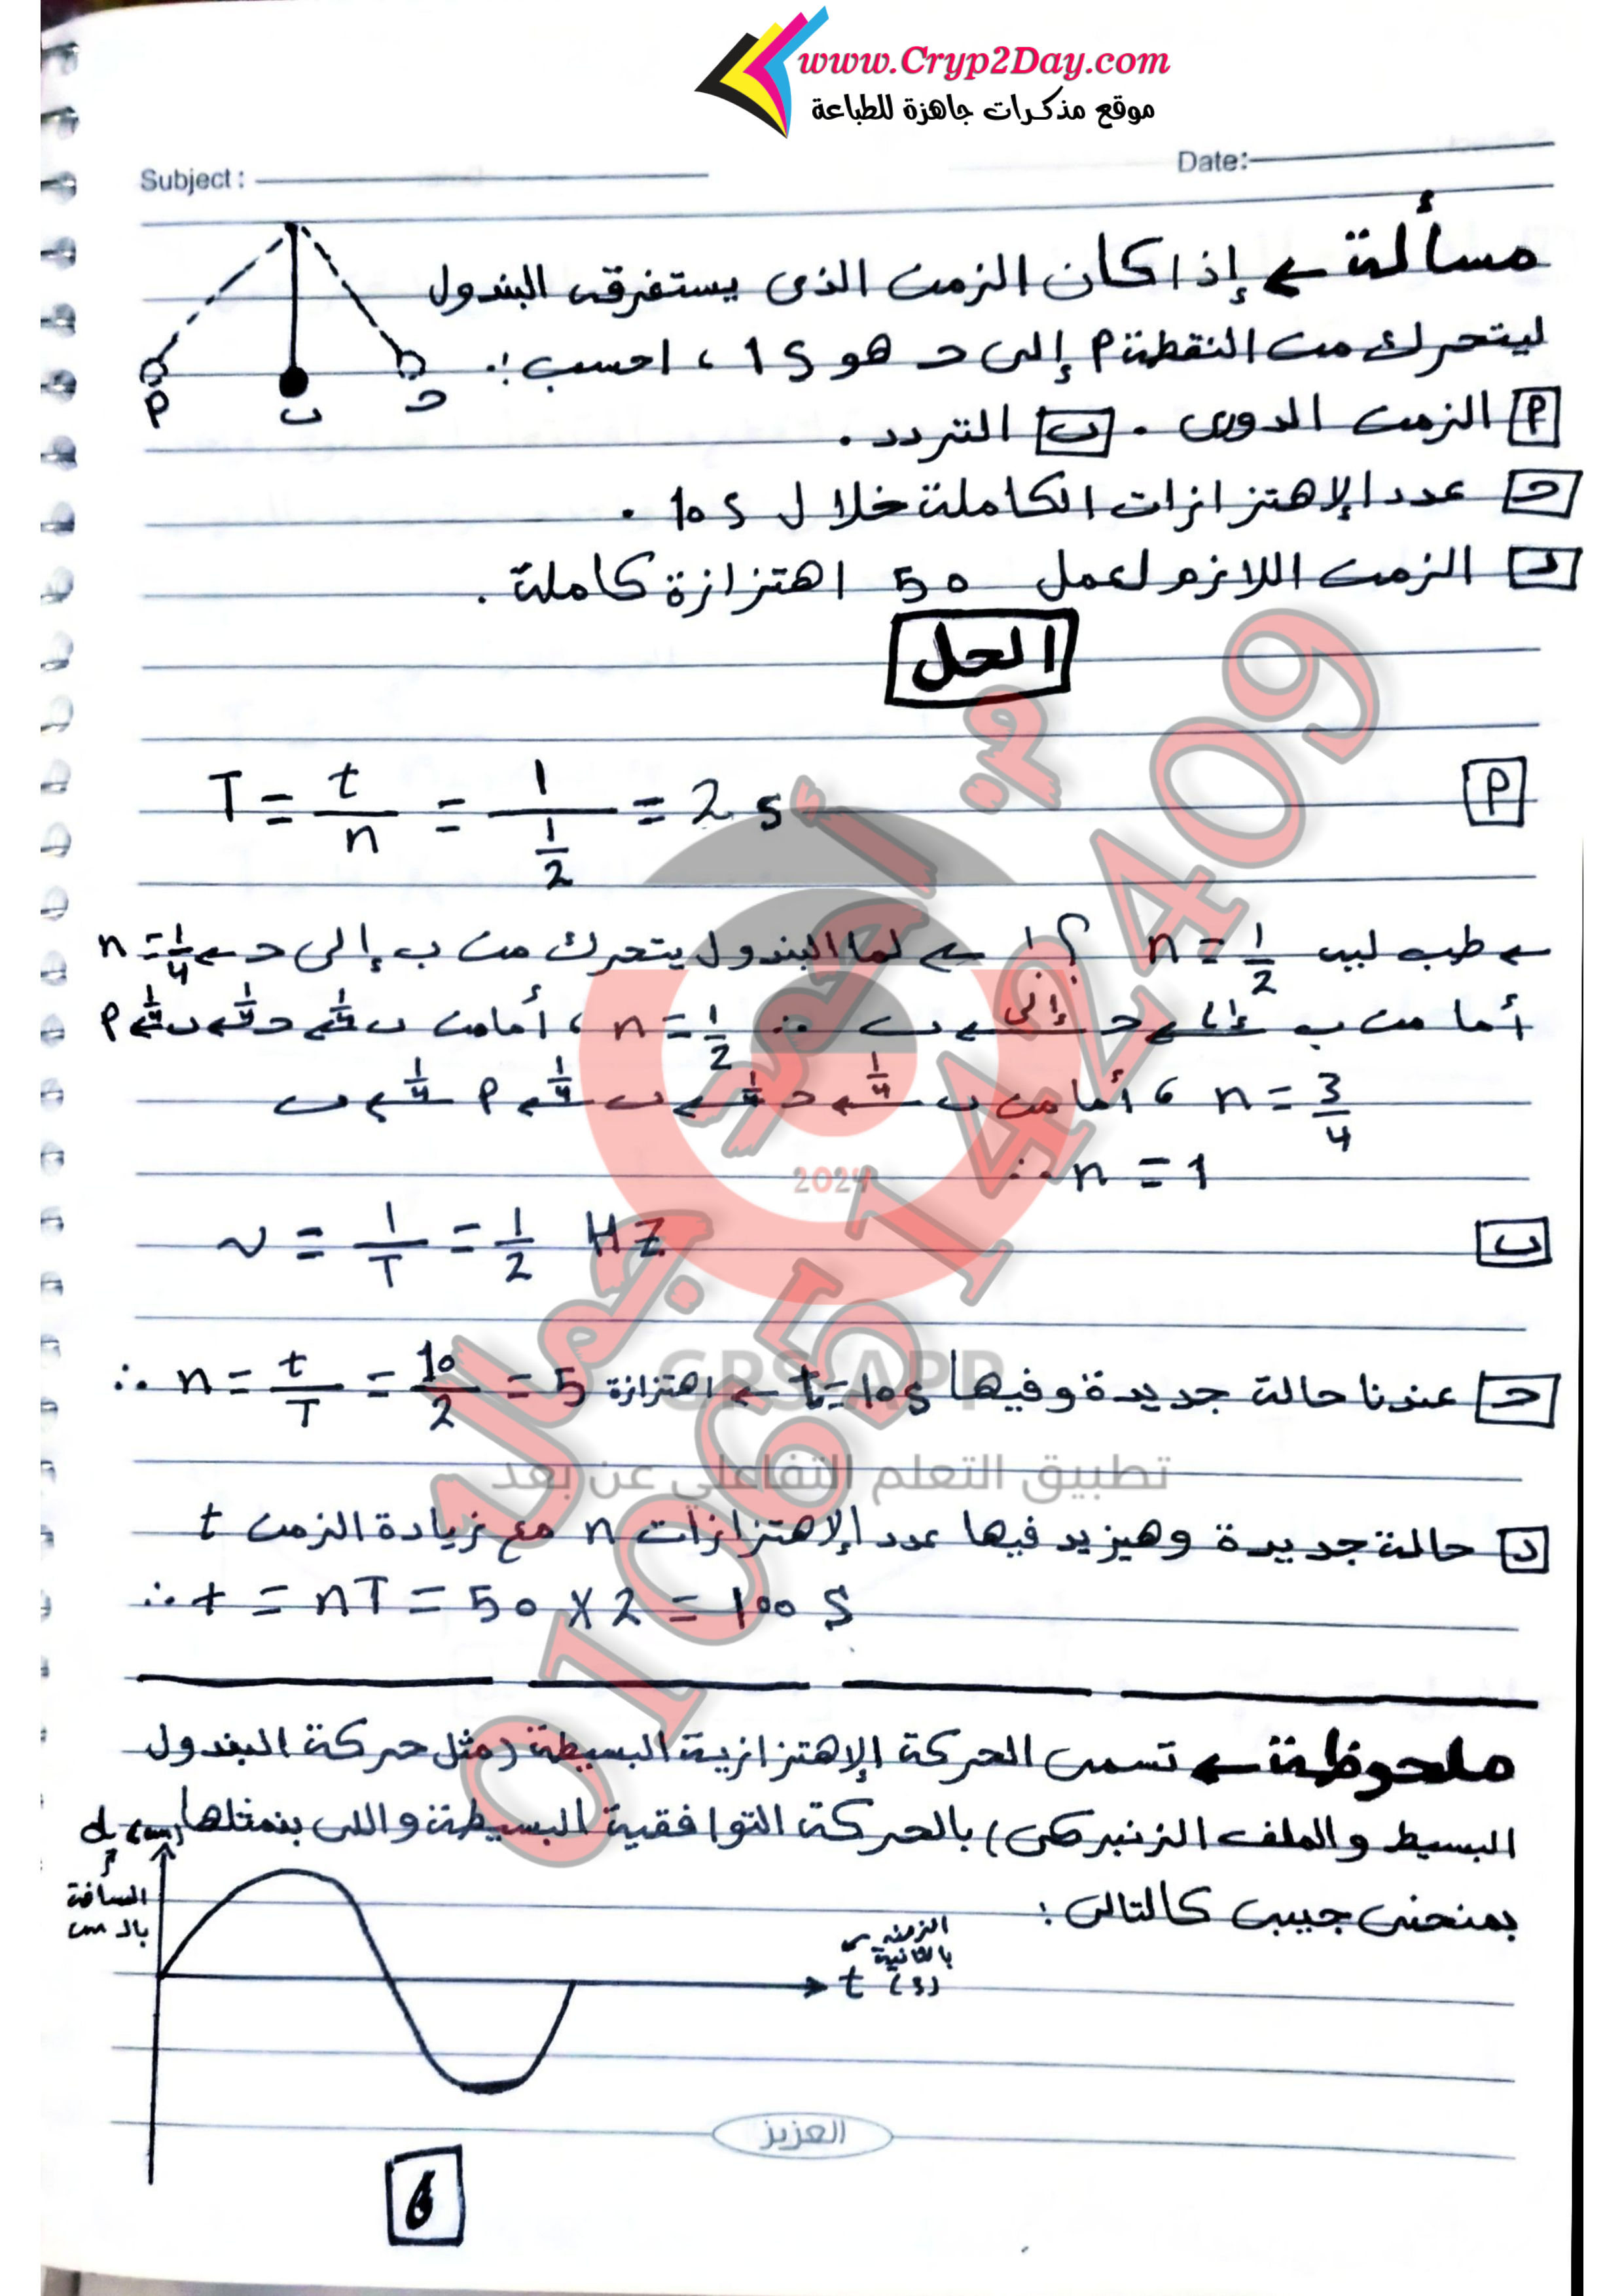 www.Cryp2Day.com
موقع مذكرات جاهزة للطباعة
Subject :
Date:
مسألة ← إذا كان الزمن الذى يستغرقه البندول
ليتحرك من النقطة P إلى حـ هو 1 s ، احسب :
P الزمن الدورى . ب التردد .
حـ عدد الإهتزازات الكاملة خلال 10 s .
د الزمن اللازم لعمل 50 اهتزازة كاملة .
P ب حـ
الحل
P T = t/n = 1/(1/2) = 2 s
← طب ليه n = 1/2 ؟! ← لما البندول يتحرك من ب إلى حـ ← n = 1/4
أما من ب إلى← حـ إلى← ب ∴ n = 1/2 ، أما من ب 1/4← حـ 1/4← ب 1/4← P
n = 3/4 ، أما من ب 1/4← حـ 1/4← ب 1/4← P 1/4← ب
∴ n = 1
ب ν = 1/T = 1/2 Hz
حـ عندنا حالة جديدة وفيها t = 10 s ← ∴ n = t/T = 10/2 = 5 اهتزازة
د حالة جديدة وهيزيد فيها عدد الإهتزازات n مع زيادة الزمن t
∴ t = nT = 50 X 2 = 100 s
ملحوظة ← تسمى الحركة الإهتزازية البسيطة (مثل حركة البندول
البسيط والملف الزنبركى) بالحركة التوافقية البسيطة واللى بنمثلها
بمنحنى جيبى كالتالى :
d (cm)
المسافة
بالـ cm
الزمن
بالثانية
t (s)
العزيز
6
م. أحمد جمال
01065142409
2024
GPS APP
تطبيق التعلم التفاعلي عن بعد